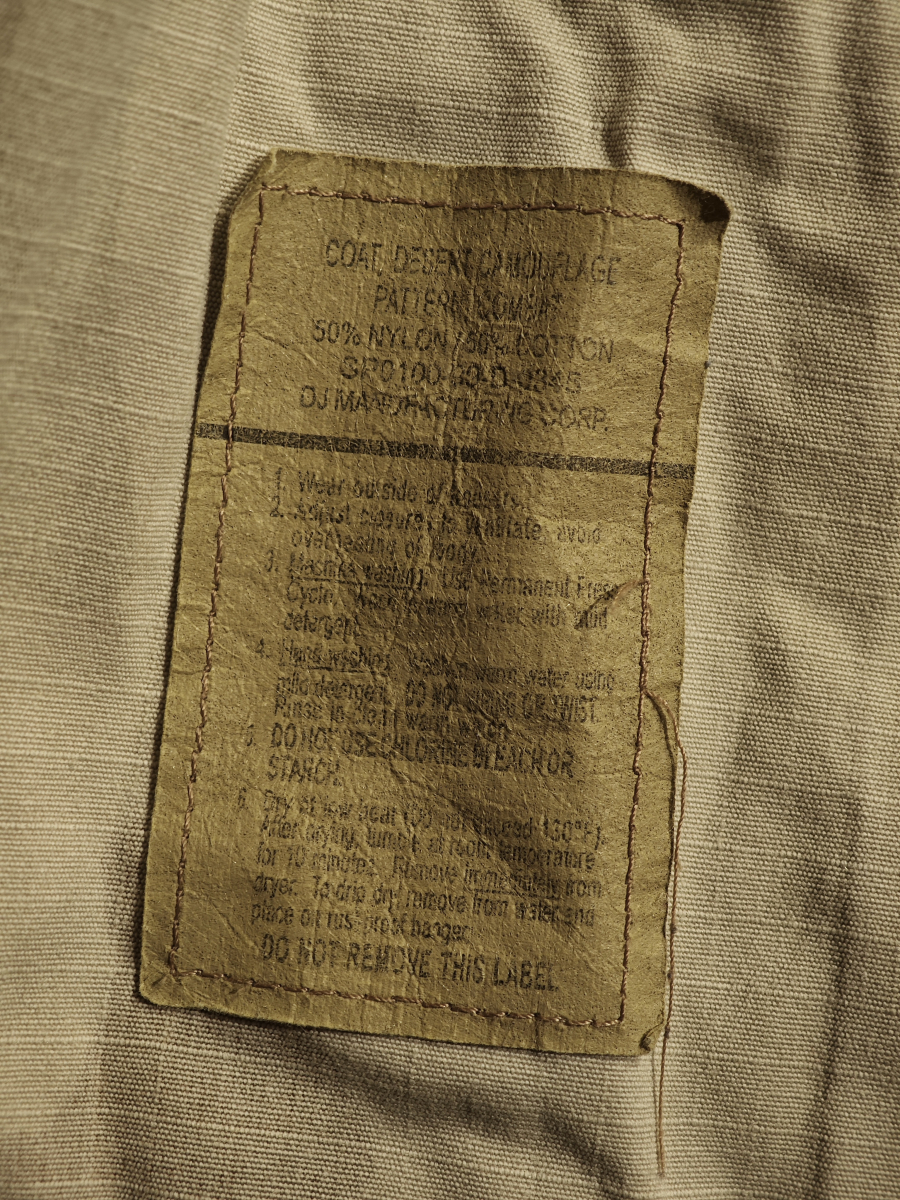 COAT, DESERT CAMOUFLAGE
PATTERN COMBAT
50% NYLON/50% COTTON
DJ MANUFACTURING CORP.
1. Wear outside of trousers.
2. Adjust closures to ventilate, avoid
overheating of body.
3. Machine washing: Use Permanent Press
Cycle. water with mild
detergent.
4. Hand washing: Wash in warm water using
mild detergent. DO NOT WRING OR TWIST.
Rinse in clean warm water.
5. DO NOT USE CHLORINE BLEACH OR
STARCH.
6. Dry at low heat (Do not exceed 130°F).
After drying, tumble at room temperature
for 10 minutes. Remove immediately from
dryer. To drip dry remove from water and
place on rust proof hanger.
DO NOT REMOVE THIS LABEL